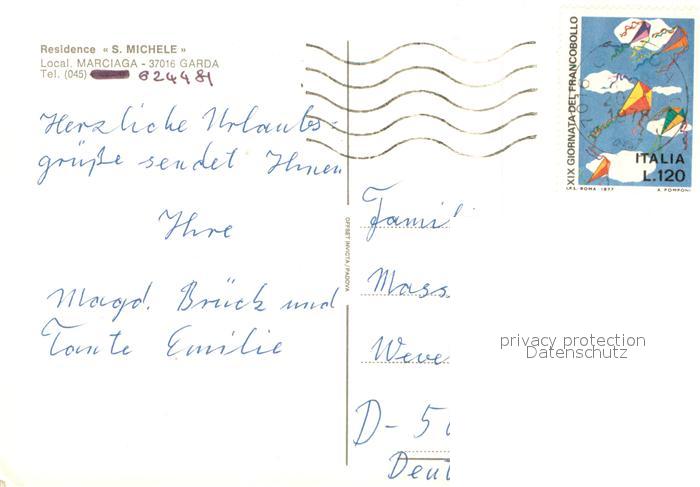 Residence « S. MICHELE »
Local. MARCIAGA - 37016 GARDA
Tel. (045) 624481
Herzliche Urlaubs-
grüße sendet Ihnen
Ihre
Magd. Brück und
Tante Emilie
OFFSET INVICTA / PADOVA
Famil
Mass
Weve
D-5
Deut
XIX GIORNATA DEL FRANCOBOLLO
ITALIA
L.120
I.P.S. - ROMA - 1977 A. POMPONI
privacy protection
Datenschutz